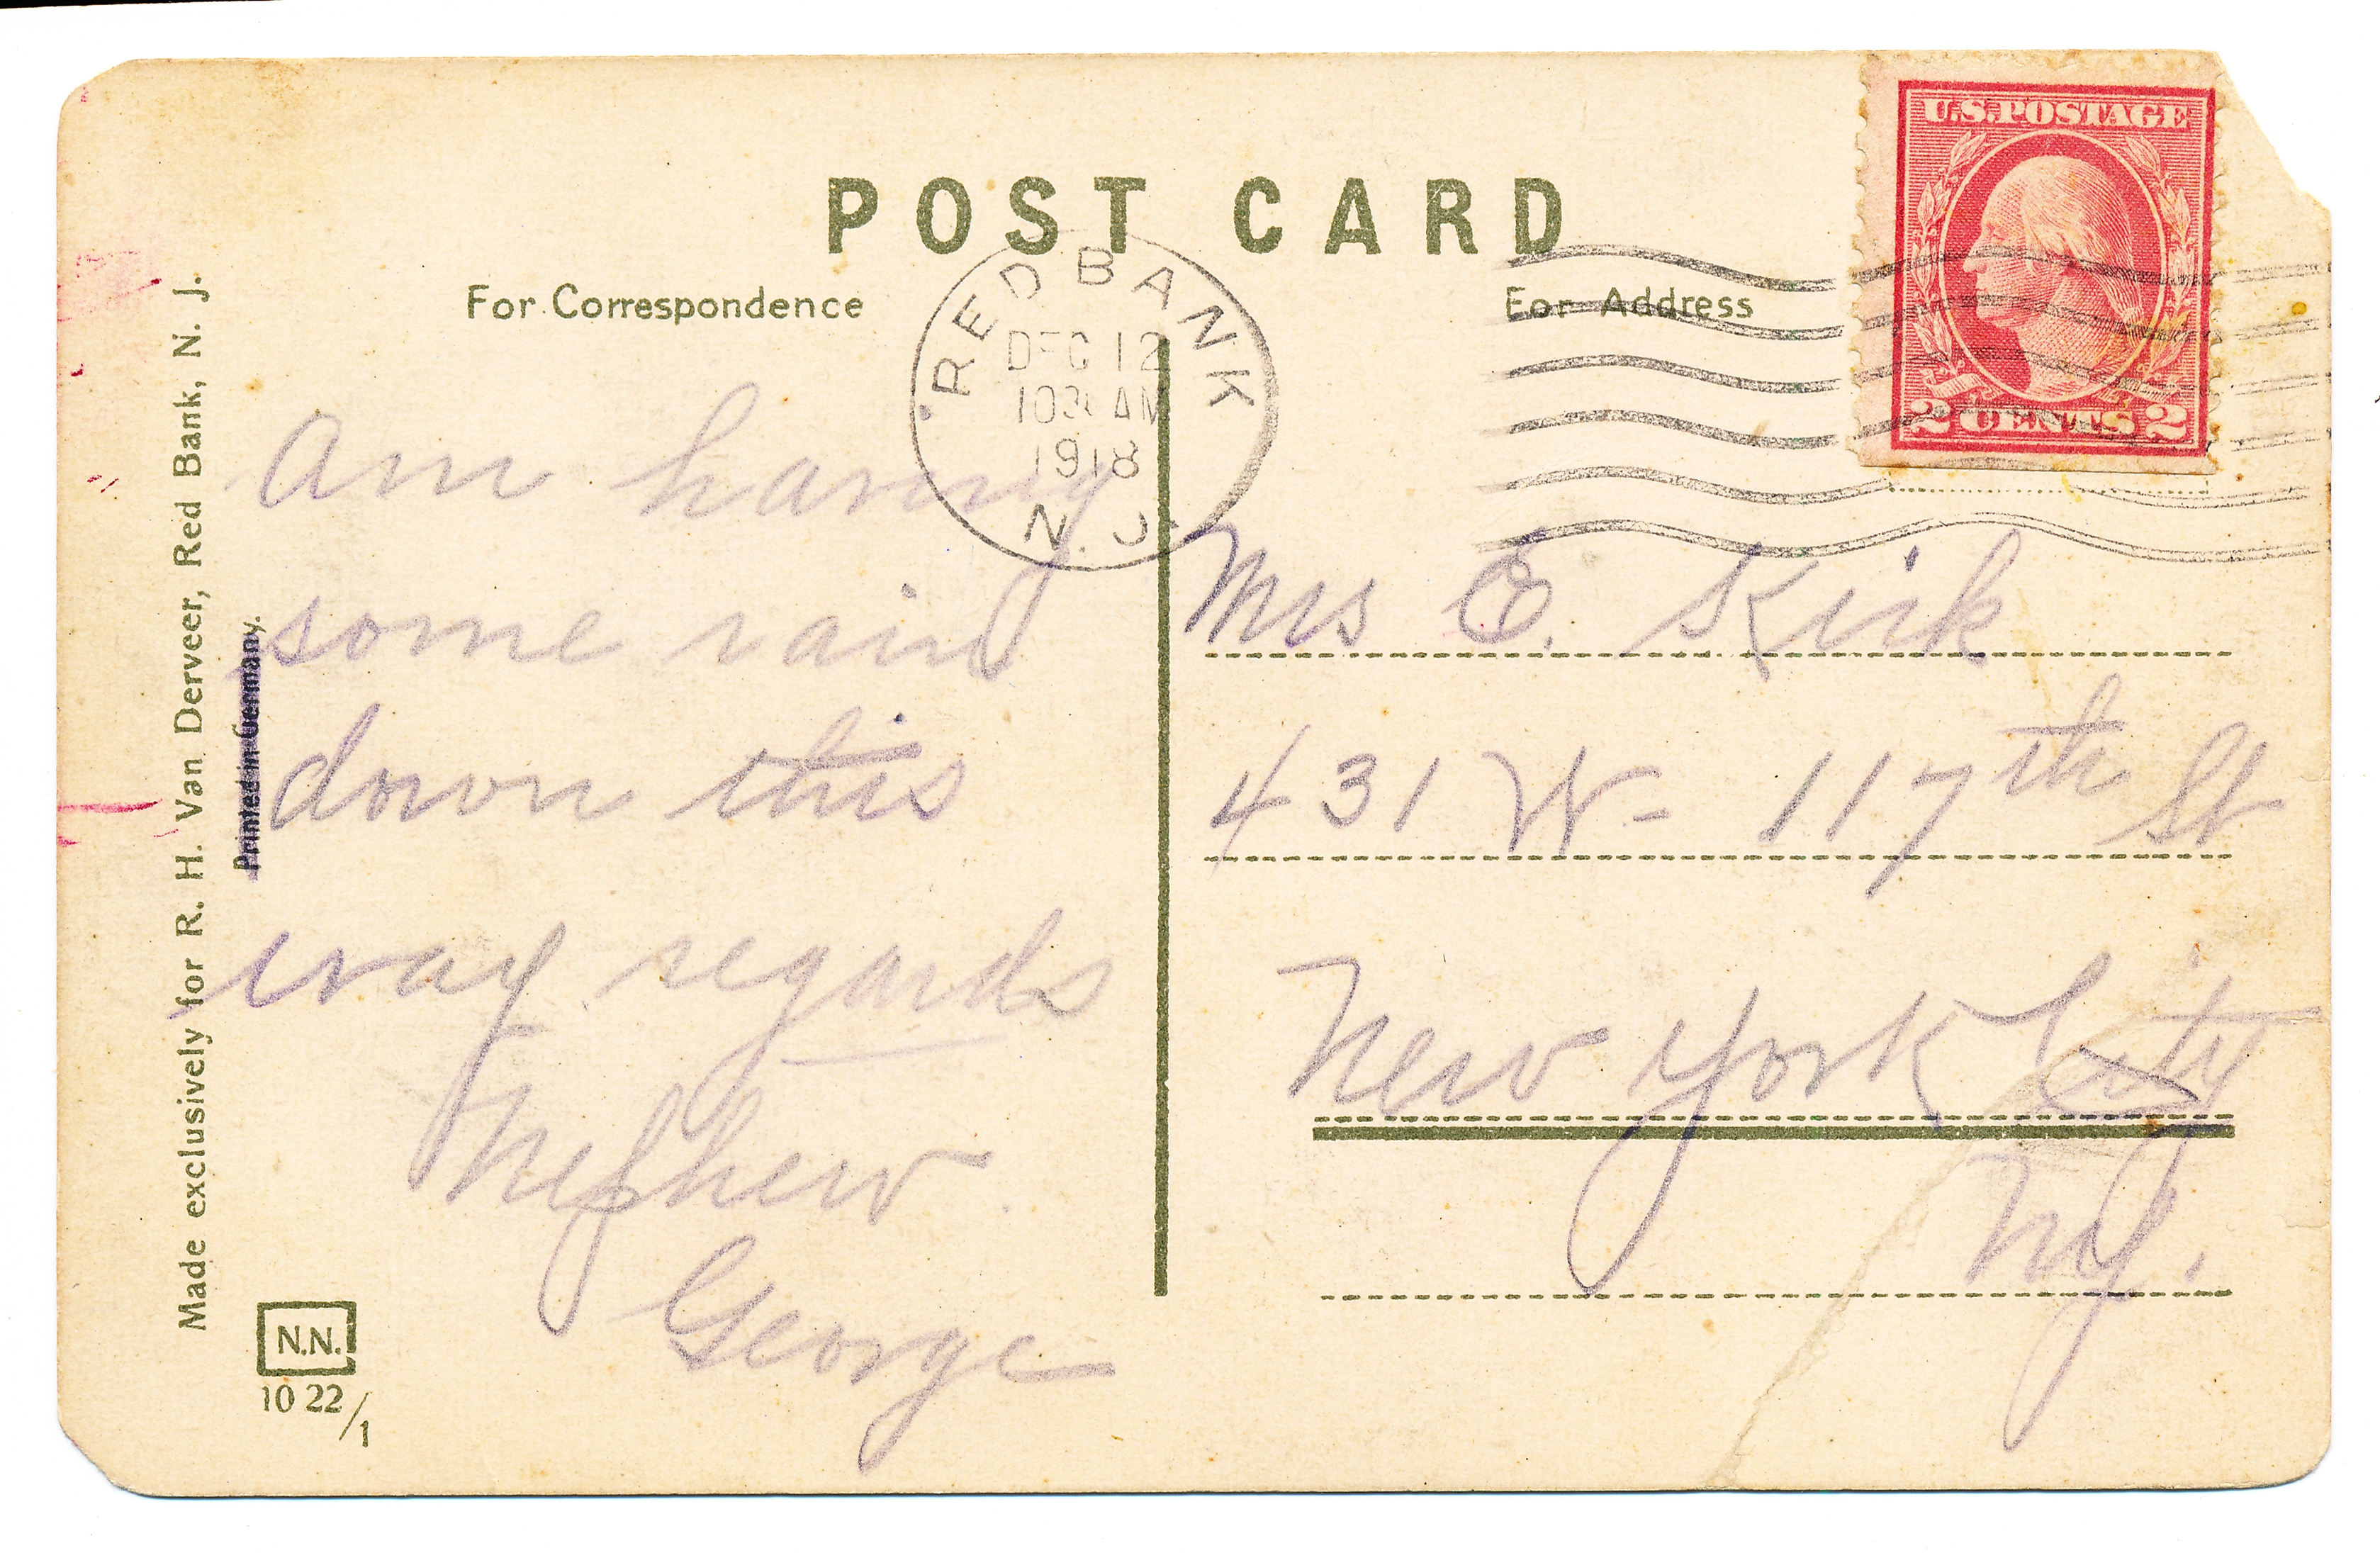 POST CARD
For Correspondence
For Address
U.S. POSTAGE
2 CENTS 2
RED BANK
DEC 12
AM
1918
N. J.
Made exclusively for R. H. Van Derveer, Red Bank, N. J.
Printed in Germany.
Am having
some rain
down this
way regards
Nephew
George
Mrs E. Kirk
431 W- 117th St
New York City
N.Y.
N.N.
10 22/1